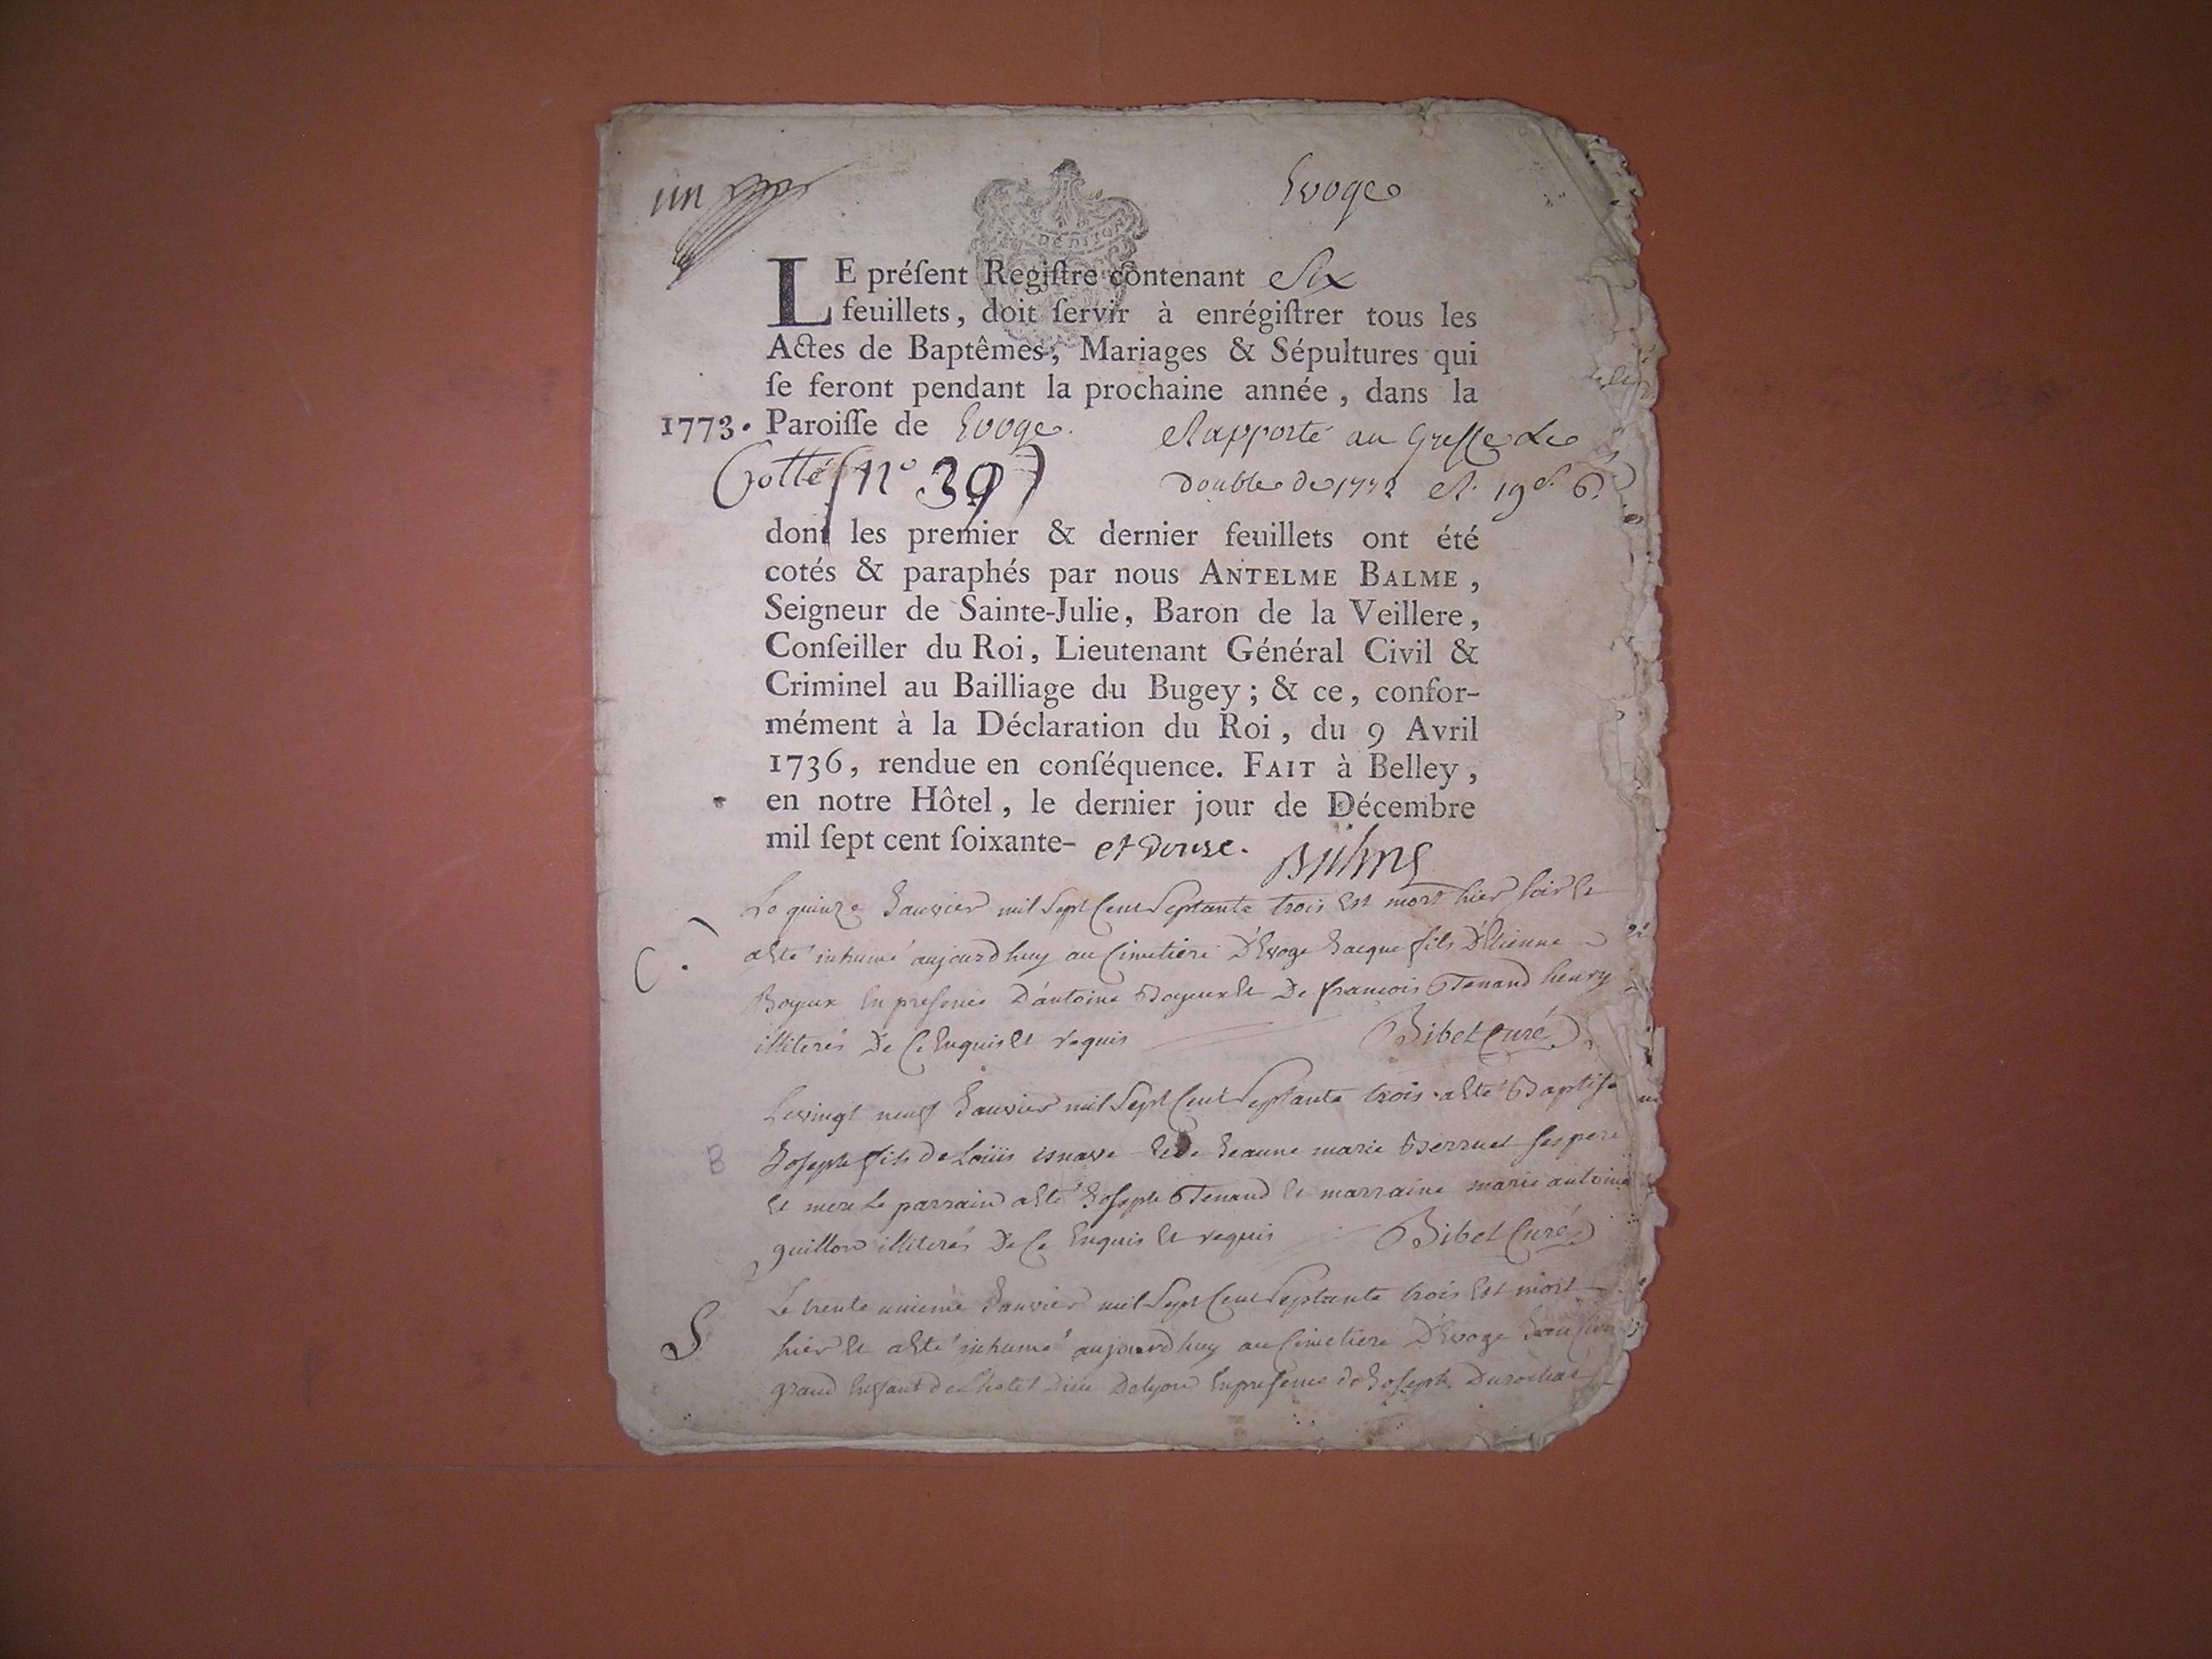 un
Evoge
LE préſent Regiſtre contenant Six
feuillets, doit ſervir à enrégiſtrer tous les
Actes de Baptêmes, Mariages & Sépultures qui
ſe feront pendant la prochaine année, dans la
1773. Paroiſſe de Evoge. Rapporté au Greffe le
Cotté n° 39 double de 1772
dont les premier & dernier feuillets ont été
cotés & paraphés par nous ANTELME BALME,
Seigneur de Sainte-Julie, Baron de la Veillere,
Conſeiller du Roi, Lieutenant Général Civil &
Criminel au Bailliage du Bugey; & ce, confor-
mément à la Déclaration du Roi, du 9 Avril
1736, rendue en conſéquence. FAIT à Belley,
en notre Hôtel, le dernier jour de Décembre
mil ſept cent ſoixante- et douze. Balme
Le quinze Janvier mil Sept Cent Septante trois Est mort hier Soir Et
aEté inhumé aujourdhuy au Cimetiere D'Evoge Jacque fils D'Etienne
Boyeux En presence D'antoine Boyeux Et De francois Tenand henry
illiterés De Ce Enquis Et requis Bibet Curé
Le vingt neuf Janvier mil Sept Cent Septante trois aEté Baptisé
B Joseph fils de Loüis Et De Jeanne marie Berruet Ses pere
Et mere Le parrain aEté Joseph Tenand Et marraine marie antoine
guillon illiterés De Ce Enquis Et requis Bibet Curé
S Le trente unieme Janvier mil Sept Cent Septante trois Est mort
hier Et aEté inhumé aujourdhuy au Cimetiere D'Evoge
grand Enfant de Lhotel Dieu De lyon En presence de Joseph Durochat